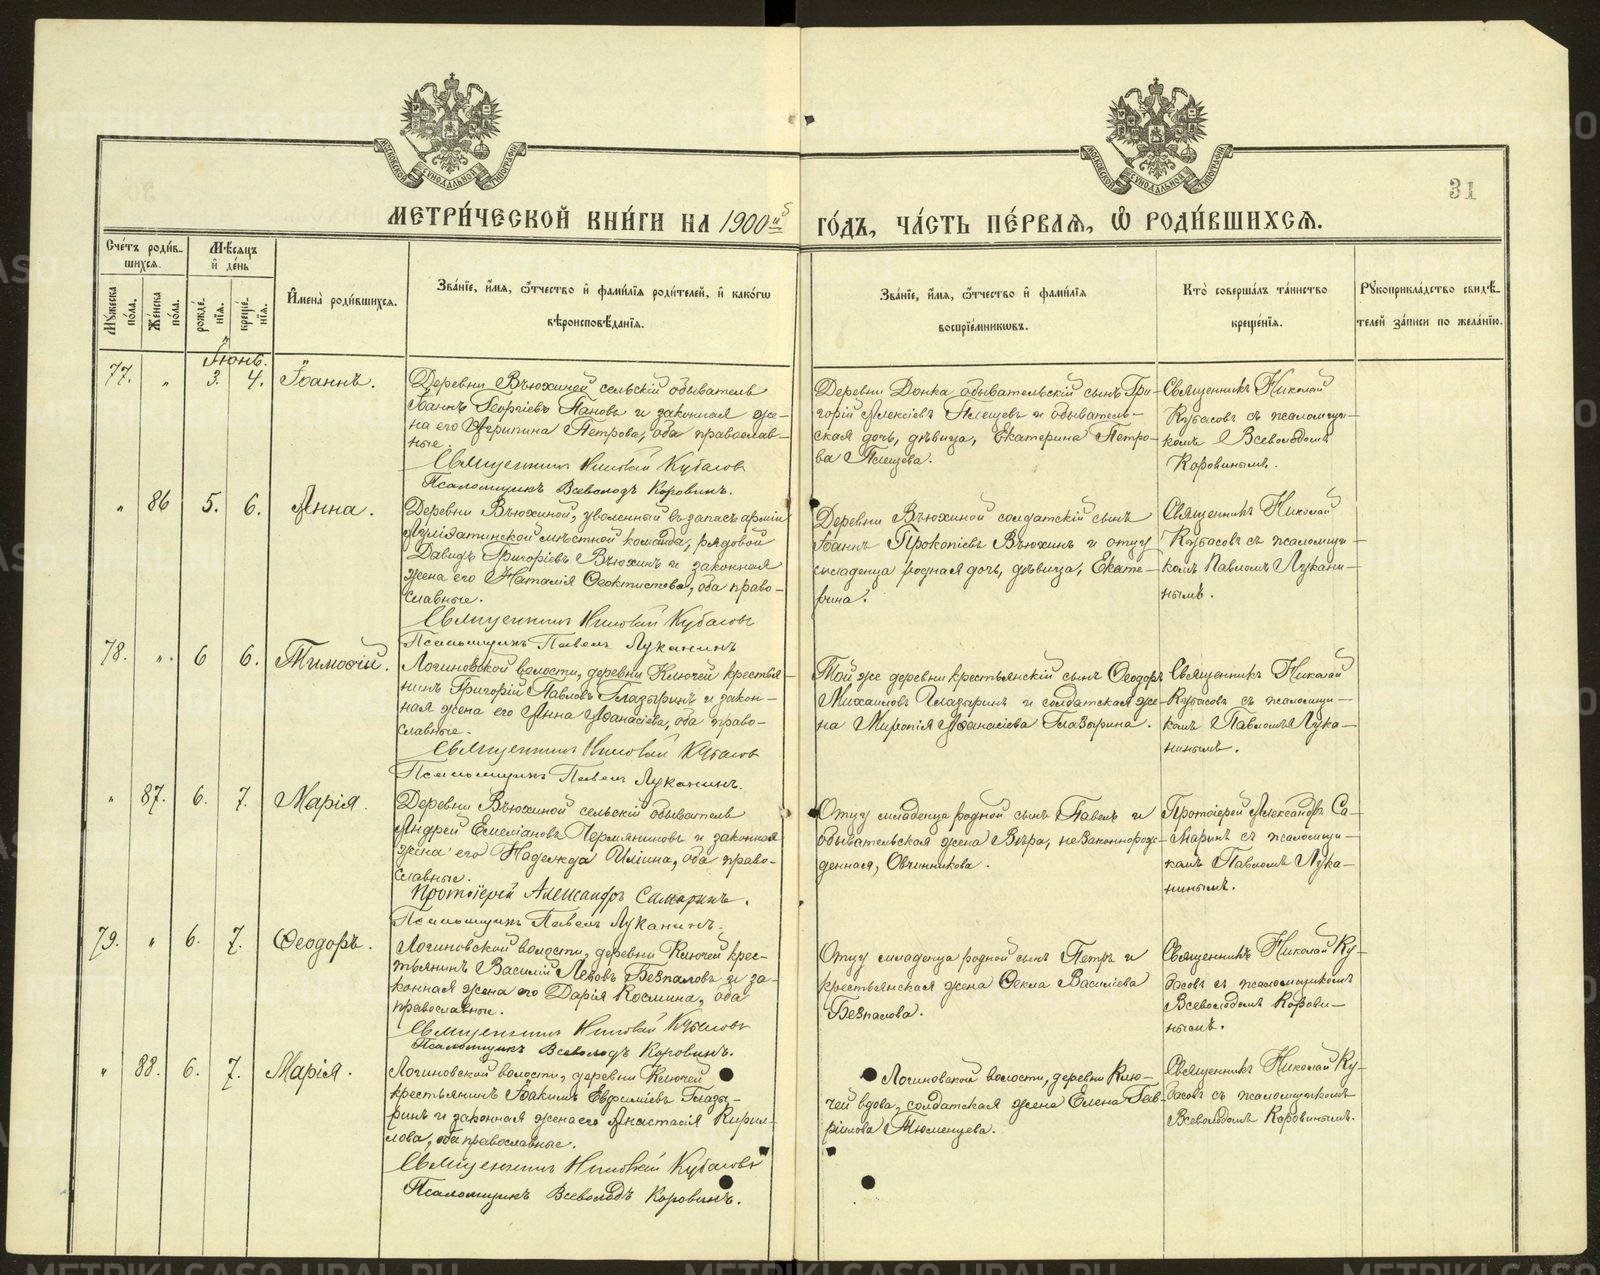 31
МЕТРИ́ЧЕСКОЙ КНИ́ГИ НА 1900й ГО́ДЪ, ЧА́СТЬ ПЕ́РВАЯ, Ѿ РОДИ́ВШИХСЯ.
Сче́тъ роди́в-
шихся.
Мѣ́сяцъ
и҆ де́нь
Мꙋ́жеска по́ла.
Же́нска по́ла.
рожде́нїя.
креще́нїя.
И҆мена̀ роди́вшихся.
Зва́нїе, и҆́мя, ѻ҆́тчество и҆ фами́лїя роди́телей, и҆ како́гѡ
вѣроисповѣ́данїя.
Зва́нїе, и҆́мя, ѻ҆́тчество и҆ фами́лїя
воспрїе́мниковъ.
Кто̀ соверша́лъ та́инство
креще́нїя.
Рꙋкоприкла́дство свидѣ́-
телей за́писи по жела́нїю.
Іюнь.
77. „ 3. 4. Іоаннъ.
Деревни Вьюхиной сельскій обыватель
Іоаннъ Георгіевъ Пановъ и законная же-
на его Агрипина Петрова, оба православ-
ные.
Священникъ Николай Кубасовъ
Псаломщикъ Всеволодъ Коровинъ.
Деревни Донка обывательскій сынъ Гри-
горій Алексіевъ Плещевъ и обыватель-
ская дочь, дѣвица, Екатерина Петро-
ва Плещева.
Священникъ Николай
Кубасовъ съ псаломщи-
комъ Всеволодомъ
Коровинымъ.
„ 86 5. 6. Анна.
Деревни Вьюхиной, уволенный въ запасъ арміи
мѣстной команды, рядовой
Давидъ Григоріевъ Вьюхинъ и законная
жена его Наталія Ѳеоктистова, оба право-
славные.
Священникъ Николай Кубасовъ
Псаломщикъ Павелъ Луканинъ
Деревни Вьюхиной солдатскій сынъ
Іоаннъ Прокопіевъ Вьюхинъ и отцу
младенца родная дочь, дѣвица, Екате-
рина.
Священникъ Николай
Кубасовъ съ псаломщи-
комъ Павломъ Лукани-
нымъ.
78. „ 6 6. Тимоѳій.
Логиновской волости, деревни Ключей крестья-
нинъ Григорій Павловъ Глазыринъ и закон-
ная жена его Анна Аѳанасіева, оба право-
славные.
Священникъ Николай Кубасовъ
Псаломщикъ Павелъ Луканинъ.
Той же деревни крестьянскій сынъ Ѳеодоръ
Михаиловъ Глазыринъ и солдатская же-
на Миропія Аѳанасіева Глазырина.
Священникъ Николай
Кубасовъ съ псаломщи-
комъ Павломъ Лука-
нинымъ.
„ 87. 6. 7. Марія.
Деревни Вьюхиной сельскій обыватель
Андрей Емеліановъ Пермяниковъ и законная
жена его Надежда Иліина, оба право-
славные.
Протоіерей Александръ Самаринъ.
Псаломщикъ Павелъ Луканинъ.
Отцу младенца родной сынъ Павелъ и
обывательская жена Вѣра, незаконнорож-
денная, Овчинникова.
Протоіерей Александръ Са-
маринъ съ псаломщи-
комъ Павломъ Лука-
нинымъ.
79. „ 6. 7. Ѳеодоръ.
Логиновской волости, деревни Ключей крес-
тьянинъ Василій Львовъ Безпаловъ и за-
конная жена его Дарія Космина, оба
православные.
Священникъ Николай Кубасовъ
Псаломщикъ Всеволодъ Коровинъ.
Отцу младенца родной сынъ Петръ и
крестьянская жена Ѳекла Василіева
Безпалова.
Священникъ Николай Ку-
басовъ съ псаломщикомъ
Всеволодомъ Корови-
нымъ.
„ 88. 6. 7. Марія.
Логиновской волости, деревни Ключей
крестьянинъ Іоакимъ Евфиміевъ Глазы-
ринъ и законная жена его Анастасія Кирил-
лова, оба православные.
Священникъ Николай Кубасовъ
Псаломщикъ Всеволодъ Коровинъ.
Логиновской волости, деревни Клю-
чей вдова, солдатская жена Елена Гав-
рилова Тюменцева.
Священникъ Николай Ку-
басовъ съ псаломщикомъ
Всеволодомъ Коровинымъ.